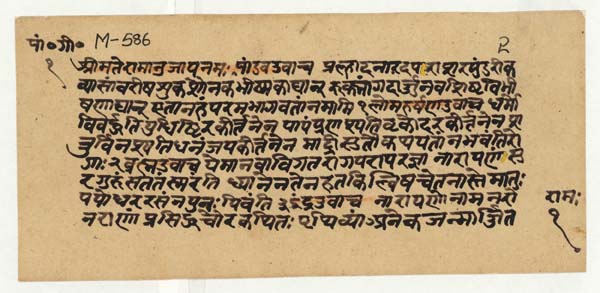 पां॰गी॰ M-586
१ श्रीमतेरामानुजायनमः पांडवउवाच प्रल्हादनारदपराशरपुंडरीक
व्यासांबरीषशुकशौनकभीष्मकाद्यान् रुक्मांगदार्जुनवशिष्ठविभी
षणाद्यान् एतानहंपरमभागवतांनमामि १ लोमहर्षणउवाच धर्मो
विवर्द्धतियुधिष्ठिरकीर्तनेन पापंप्रणश्यतिवृकोदरकीर्तनेनं श
त्रुविनश्यतिधनंजयकीर्तनेन माद्रीसुतौकथयतांनभवंतिरो
गाः २ ब्रह्मउवाच येमानवाविगतरागपरापरज्ञा नारायणंसु
रगुरुंसततंस्मरंति ध्यानेनतेनहतकिल्विषचेतनास्ते मातुः
पयोधररसंनपुनःपिवंति ३ इंद्रउवाच नारायणोनामनरो
नराणां प्रसिद्धचोरःकथितःपृथिव्यां अनेकजन्मार्जित
रामः
१